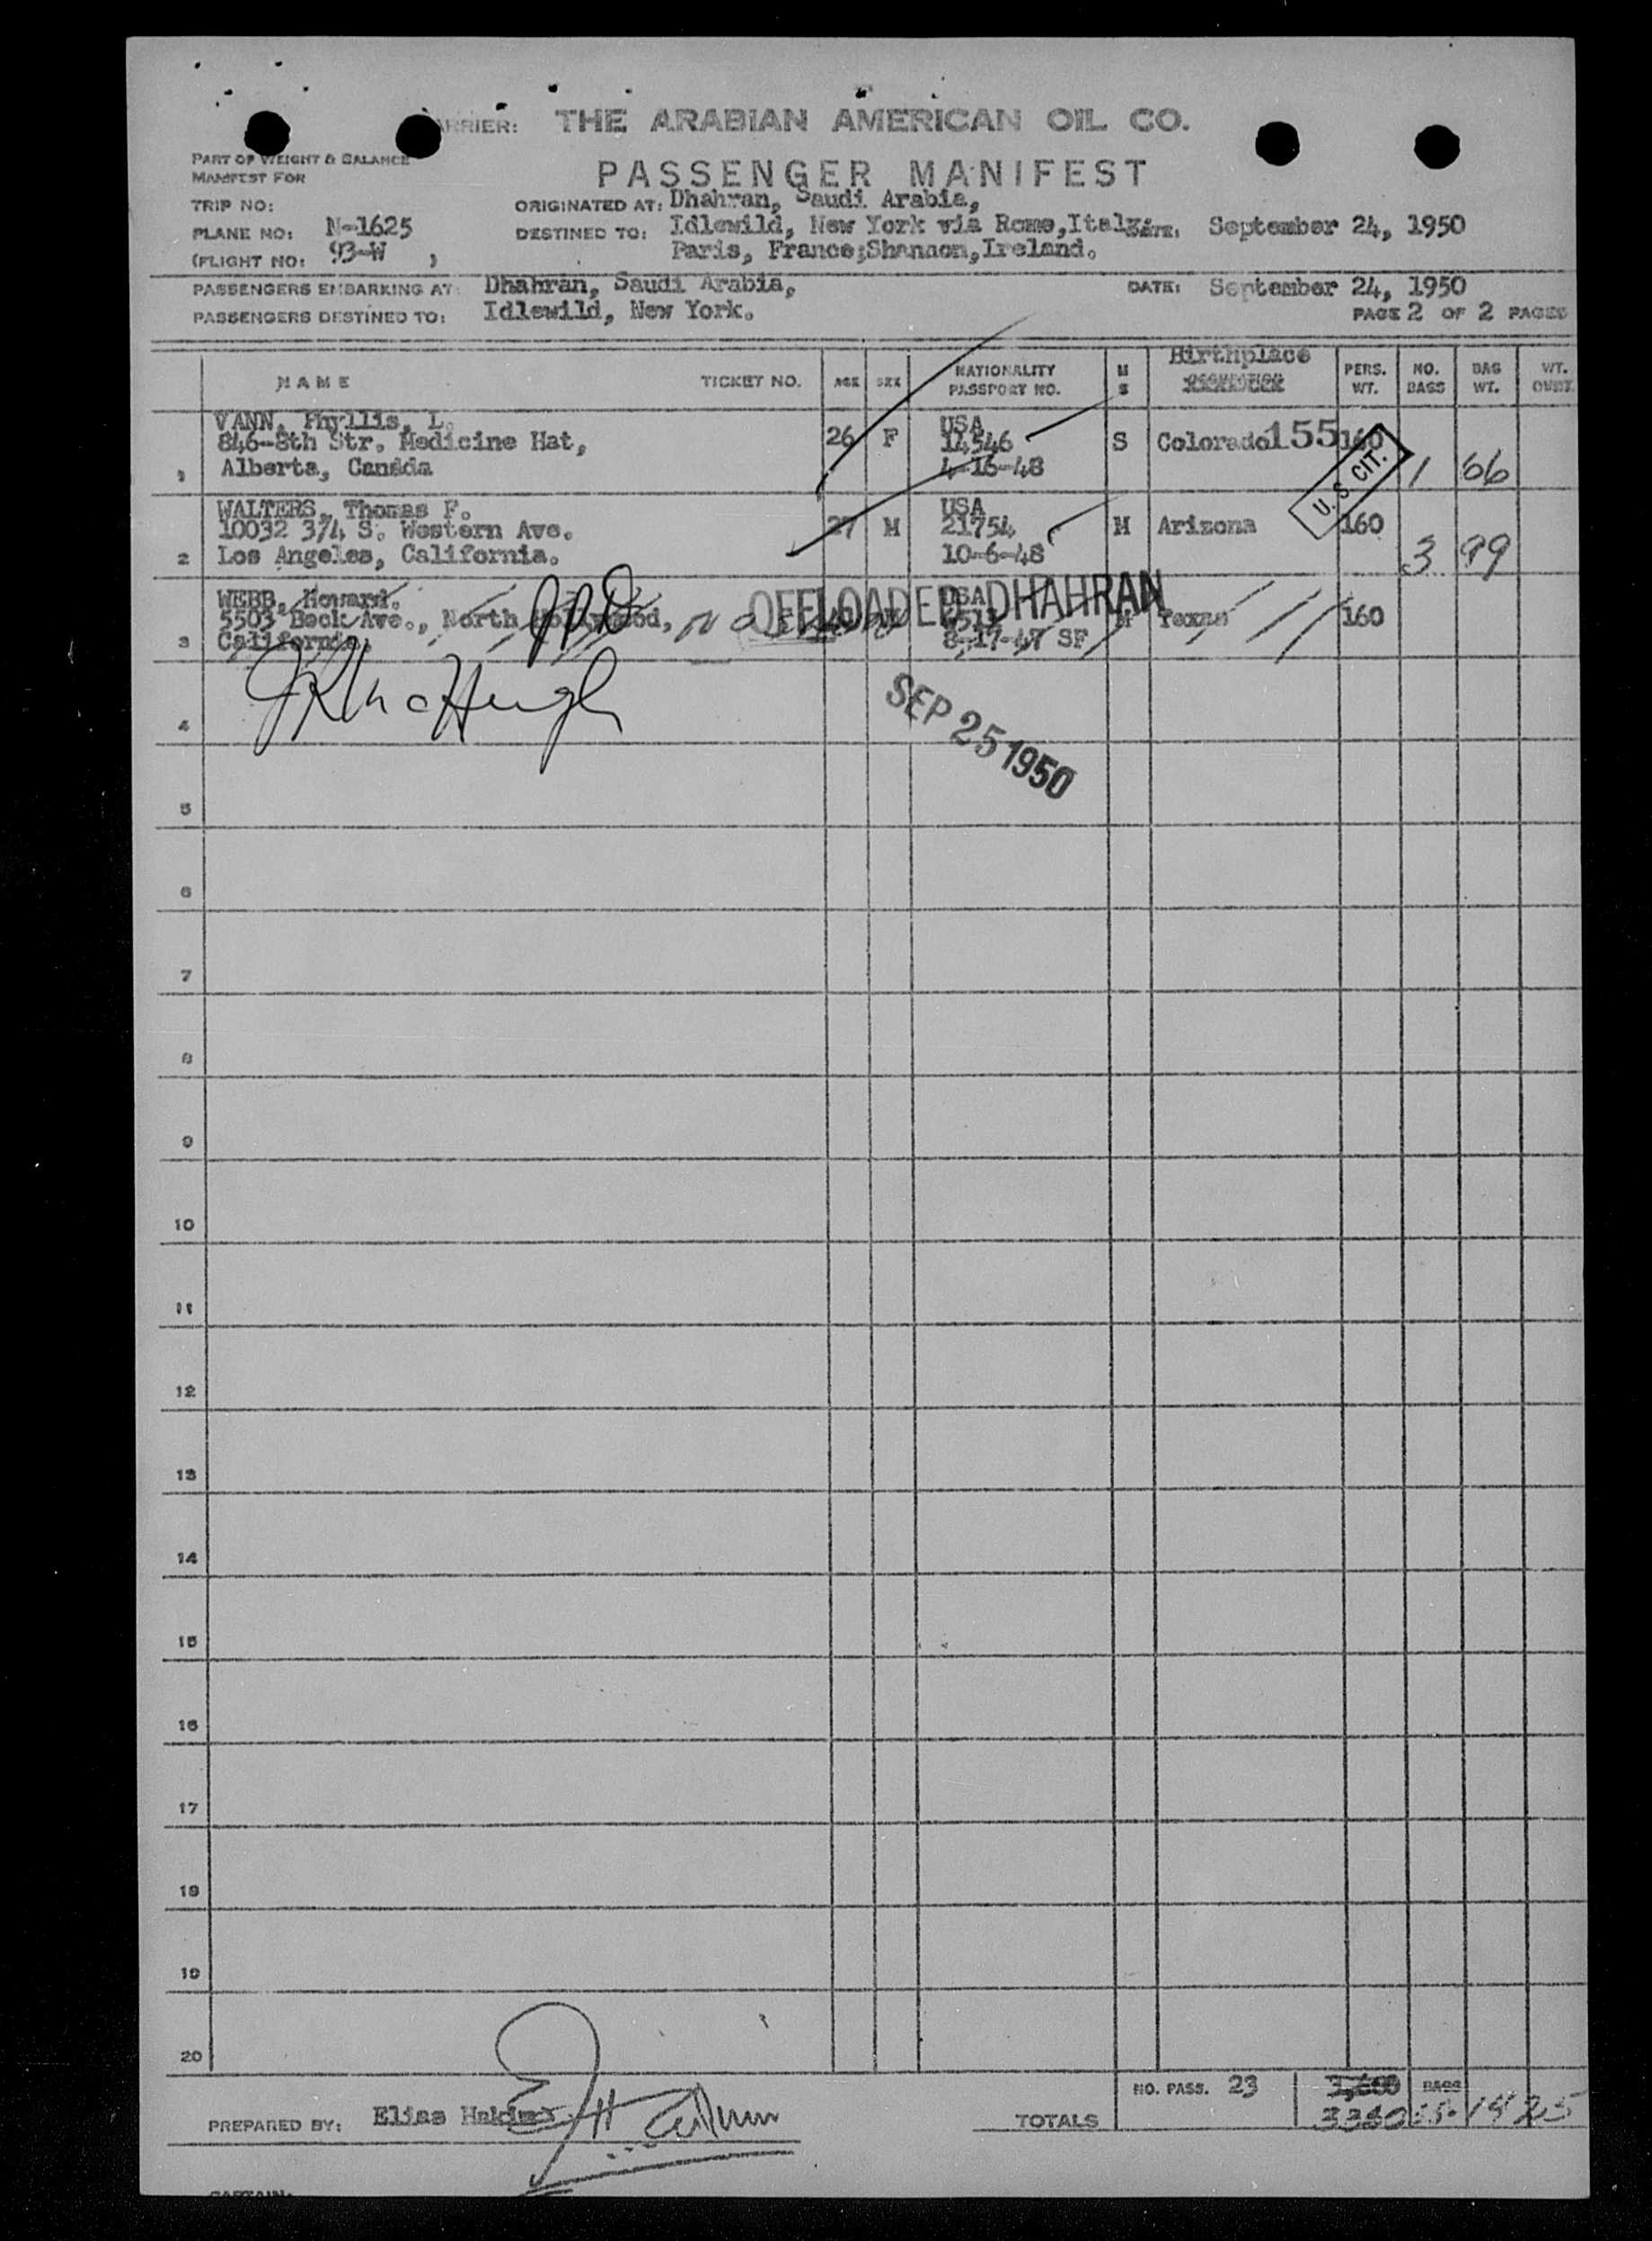 ARRIER: THE ARABIAN AMERICAN OIL CO.
PART OF WEIGHT & BALANCE
MANIFEST FOR
PASSENGER MANIFEST
TRIP NO:
ORIGINATED AT: Dhahran, Saudi Arabia,
PLANE NO: N-1625
DESTINED TO: Idlewild, New York via Rome, Italy DATE: September 24, 1950
(FLIGHT NO: 93-W )
Paris, France; Shannon, Ireland.
PASSENGERS EMBARKING AT: Dhahran, Saudi Arabia, DATE: September 24, 1950
PASSENGERS DESTINED TO: Idlewild, New York. PAGE 2 OF 2 PAGES
NAME TICKET NO. AGE SEX NATIONALITY PASSPORT NO. M S Birthplace PERS. WT. NO. BAGS BAG WT. WT. OVER.
VANN, Phyllis, L. USA
846-8th Str. Medicine Hat, 26 F 14546 S Colorado 155 160
1 Alberta, Canada 4-16-48 1 66
U. S. CIT.
WALTERS, Thomas F. USA
10032 3/4 S. Western Ave. 27 M 21754 M Arizona 160
2 Los Angeles, California. 10-6-48 3 99
WEBB, Howard. USA
5503 Beck Ave., North Hollywood, OFFLOADED DHAHRAN Texas 160
3 California. 8-17-47 SF
4
SEP 25 1950
5
6
7
8
9
10
11
12
13
14
15
16
17
18
19
20
NO. PASS. 23 BAGS
PREPARED BY: Elias Hakim TOTALS 1425
CAPTAIN: